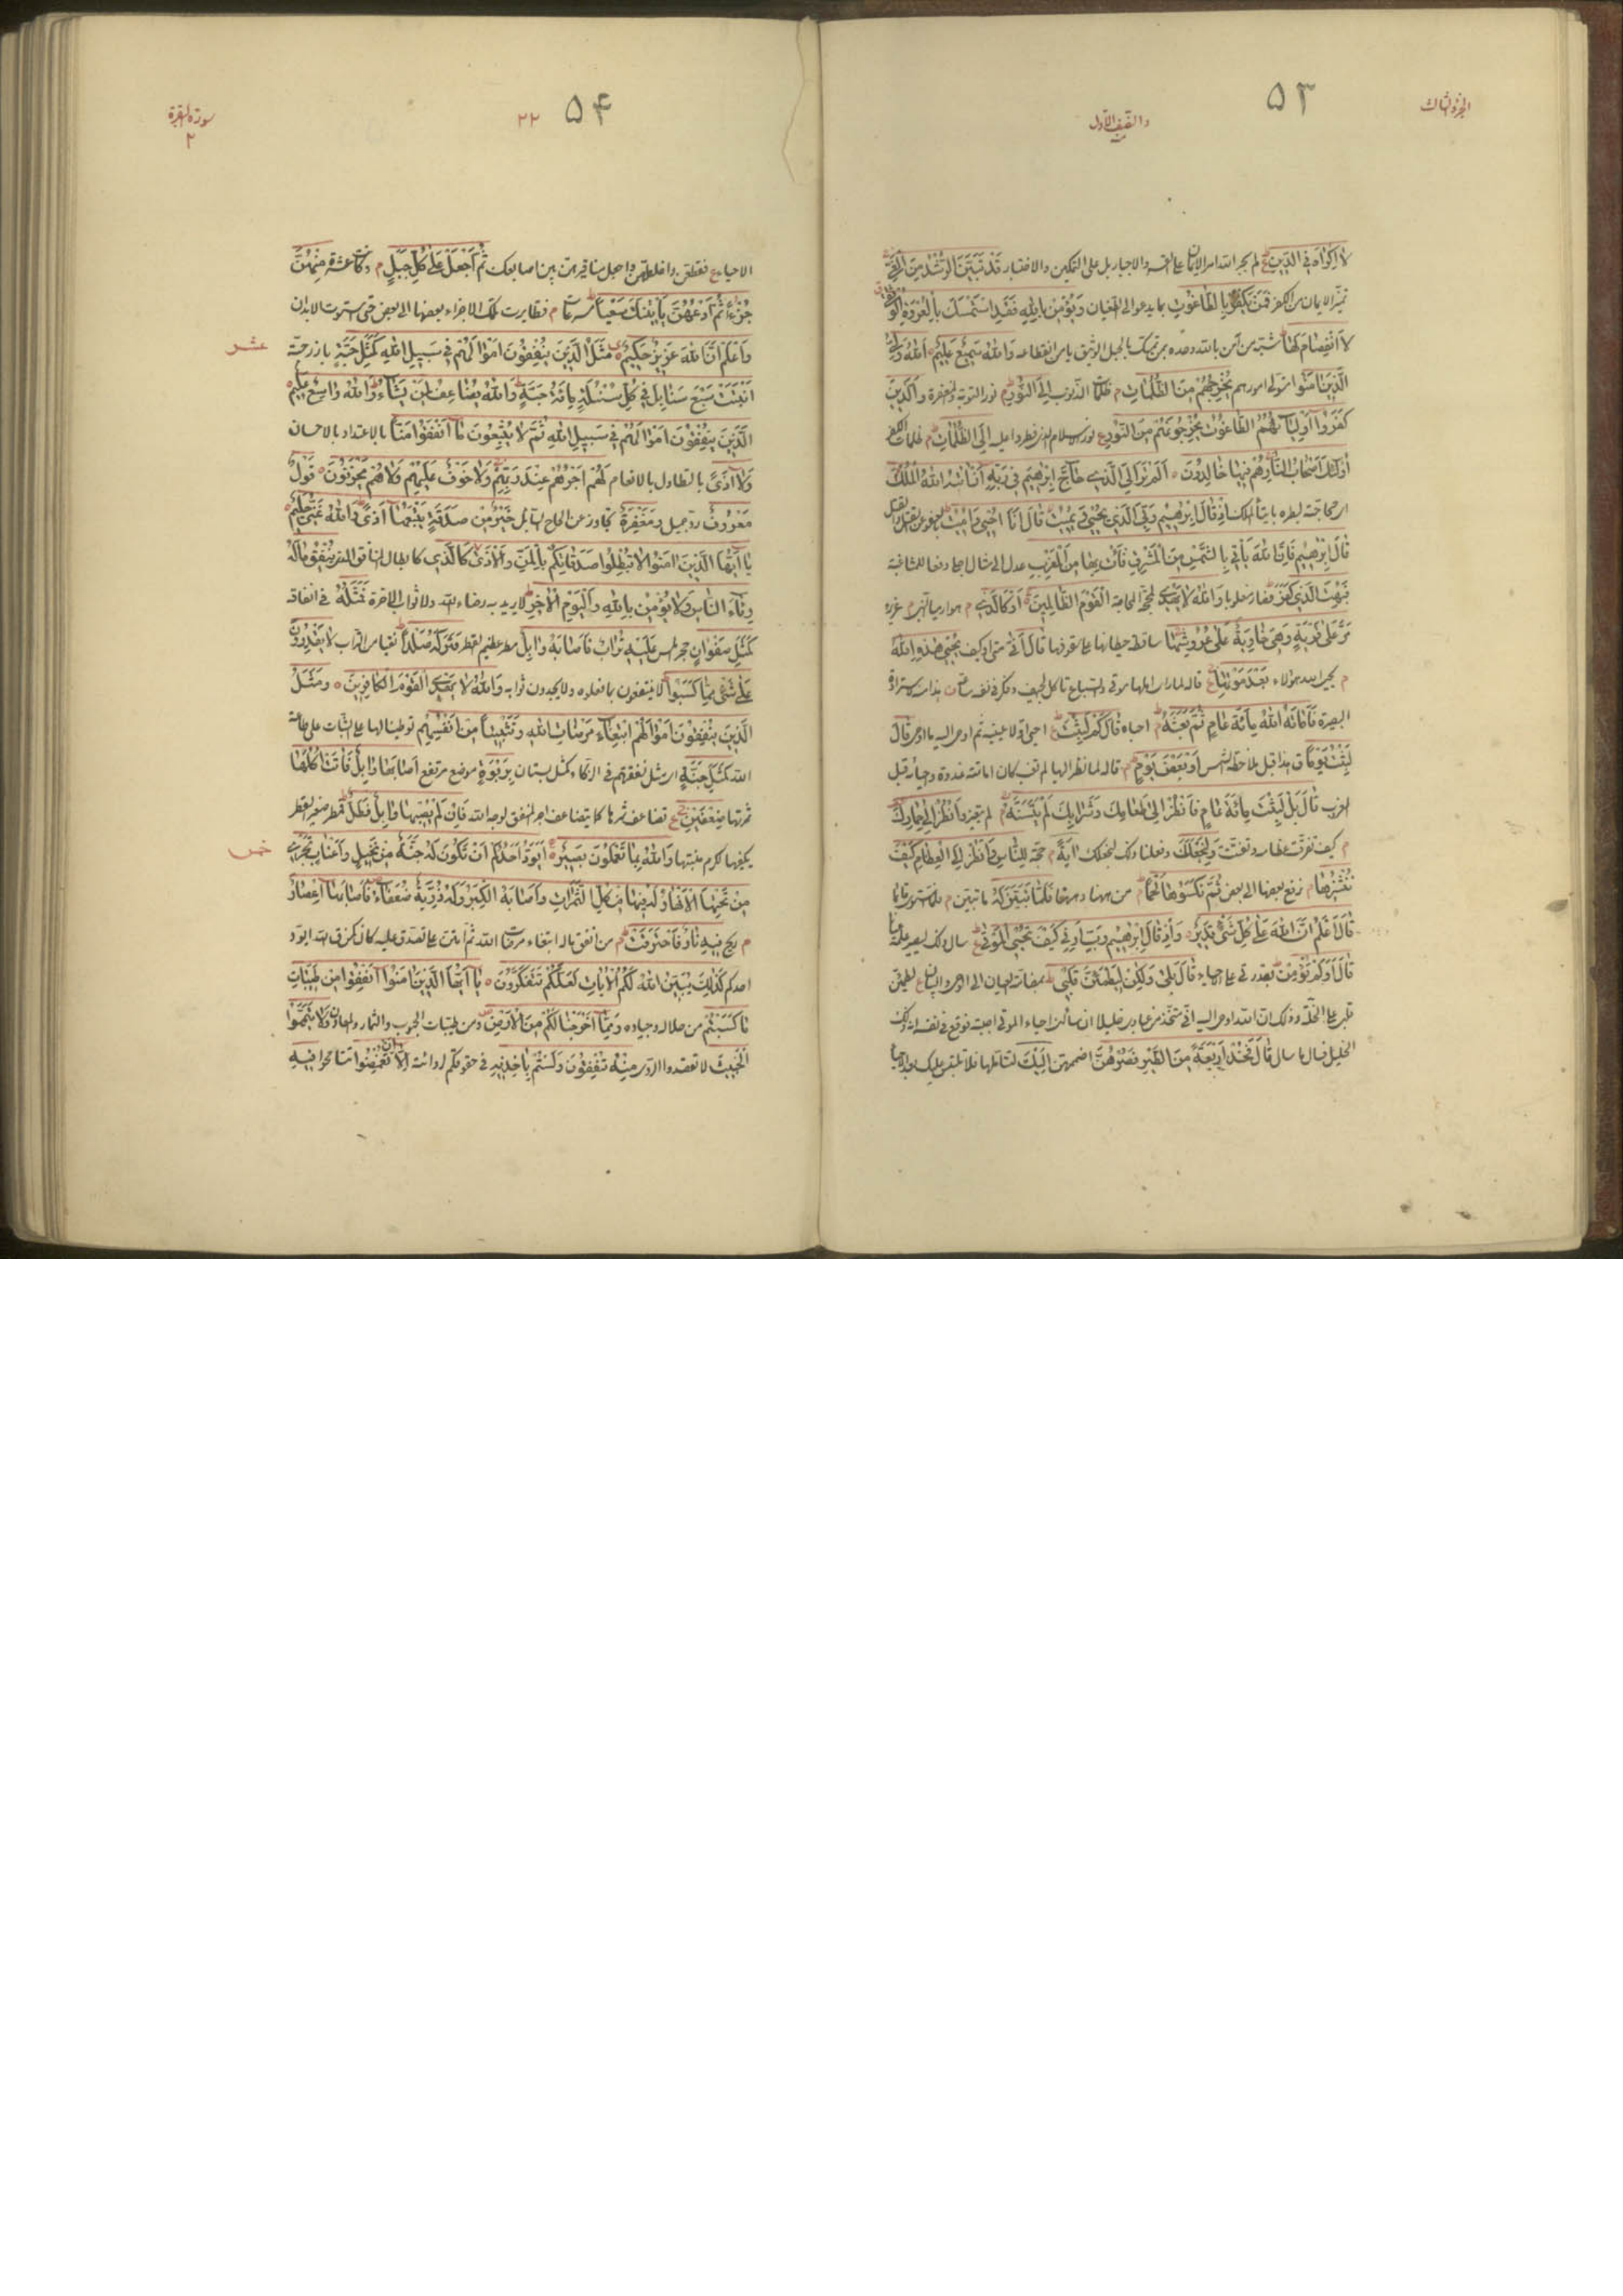 الجزء الثالث
۵۳
والنصف الأول
لَا إِكْرَاهَ فِي الدِّينِ لم يجر الله امر الايمان على القسر والاجبار بل على التمكين والاختيار قَدْ تَبَيَّنَ الرُّشْدُ مِنَ الْغَيِّ
تميّز الايمان من الكفر فَمَنْ يَكْفُرْ بِالطَّاغُوتِ بما يدعو الى الطغيان وَيُؤْمِنْ بِاللهِ فَقَدِ اسْتَمْسَكَ بِالْعُرْوَةِ الْوُثْقَى
لَا انْفِصَامَ لَهَا شبّه من آمن بالله وحده بمن تمسك بالحبل الوثيق يأمن انقطاعه وَاللهُ سَمِيعٌ عَلِيمٌ اللهُ وَلِيُّ
الَّذِينَ آمَنُوا متولي امورهم يُخْرِجُهُمْ مِنَ الظُّلُمَاتِ م ظلمات الذنوب إِلَى النُّورِ نور التوبة والمغفرة وَالَّذِينَ
كَفَرُوا أَوْلِيَاؤُهُمُ الطَّاغُوتُ يُخْرِجُونَهُمْ مِنَ النُّورِ نور الاسلام الذي فطروا عليه إِلَى الظُّلُمَاتِ م ظلمات الكفر
أُولَئِكَ أَصْحَابُ النَّارِ هُمْ فِيهَا خَالِدُونَ أَلَمْ تَرَ إِلَى الَّذِي حَاجَّ إِبْرَاهِيمَ فِي رَبِّهِ أَنْ آتَاهُ اللهُ الْمُلْكَ
اي محاجته لبطره بايتاء الملك إِذْ قَالَ إِبْرَاهِيمُ رَبِّيَ الَّذِي يُحْيِي وَيُمِيتُ قَالَ أَنَا أُحْيِي وَأُمِيتُ بالعفو عن القتل والقتل
قَالَ إِبْرَاهِيمُ فَإِنَّ اللهَ يَأْتِي بِالشَّمْسِ مِنَ الْمَشْرِقِ فَأْتِ بِهَا مِنَ الْمَغْرِبِ عدل الى مثال اجلى دفعا للمشاغبة
فَبُهِتَ الَّذِي كَفَرَ فصار مغلوبا وَاللهُ لَا يَهْدِي لمحجة المحاجة الْقَوْمَ الظَّالِمِينَ أَوْ كَالَّذِي م هو ارميا النبي عزير
مَرَّ عَلَى قَرْيَةٍ وَهِيَ خَاوِيَةٌ عَلَى عُرُوشِهَا ساقطة حيطانها على سقوفها قَالَ أَنَّى متى او كيف يُحْيِي هَذِهِ اللهُ
م يحيي الله هؤلاء بَعْدَ مَوْتِهَا قاله لما رأى اهلها موتى والسباع تأكل الجيف
البصيرة فَأَمَاتَهُ اللهُ مِائَةَ عَامٍ ثُمَّ بَعَثَهُ م احياه قَالَ كَمْ لَبِثْتَ قَالَ
لَبِثْتُ يَوْمًا قبل ملاحظة الشمس أَوْ بَعْضَ يَوْمٍ م قاله لما نظر اليها لم تغب كان اماتته غدوة واحياؤه قبل
الغروب قَالَ بَلْ لَبِثْتَ مِائَةَ عَامٍ فَانْظُرْ إِلَى طَعَامِكَ وَشَرَابِكَ لَمْ يَتَسَنَّهْ م لم يتغير وَانْظُرْ إِلَى حِمَارِكَ
م كيف تفرقت عظامه وتفتت وَلِنَجْعَلَكَ وفعلنا ذلك لنجعلك آيَةً م حجة لِلنَّاسِ وَانْظُرْ إِلَى الْعِظَامِ كَيْفَ
نُنْشِزُهَا م نرفع بعضها الى بعض ثُمَّ نَكْسُوهَا لَحْمًا م من ههنا وههنا فَلَمَّا تَبَيَّنَ لَهُ ما تبين م
قَالَ أَعْلَمُ أَنَّ اللهَ عَلَى كُلِّ شَيْءٍ قَدِيرٌ وَإِذْ قَالَ إِبْرَاهِيمُ رَبِّ أَرِنِي كَيْفَ تُحْيِي الْمَوْتَى سأل ذلك ليصير علمه
قَالَ أَوَلَمْ تُؤْمِنْ بقدرتي على الاحياء قَالَ بَلَى وَلَكِنْ لِيَطْمَئِنَّ قَلْبِي بمضافة العيان الى الوحي والبيان
قلبي على الخلة وذلك ان الله اوحى اليه اني متخذ من عبادي خليلا ان سألني احياء الموتى اجبته فوقع في نفسه انه ذلك
الخليل فسأل ما سأل قَالَ فَخُذْ أَرْبَعَةً مِنَ الطَّيْرِ فَصُرْهُنَّ اضممهن إِلَيْكَ لتتأملها فلا تلتبس عليك بعد الاحياء
سورة البقرة
۲
۲۲
۵۴
الاحياء فقطعهن واخلطهن واجعل مناقيرهن بين اصابعك ثُمَّ اجْعَلْ عَلَى كُلِّ جَبَلٍ م وكانت عشرة مِنْهُنَّ
جُزْءًا ثُمَّ ادْعُهُنَّ يَأْتِينَكَ سَعْيًا م فتطايرت تلك الاجزاء بعضها الى بعض حتى استوت الابدان
وَاعْلَمْ أَنَّ اللهَ عَزِيزٌ حَكِيمٌ مَثَلُ الَّذِينَ يُنْفِقُونَ أَمْوَالَهُمْ فِي سَبِيلِ اللهِ كَمَثَلِ حَبَّةٍ باذر حبة
عشر
أَنْبَتَتْ سَبْعَ سَنَابِلَ فِي كُلِّ سُنْبُلَةٍ مِائَةُ حَبَّةٍ وَاللهُ يُضَاعِفُ لِمَنْ يَشَاءُ وَاللهُ وَاسِعٌ عَلِيمٌ
الَّذِينَ يُنْفِقُونَ أَمْوَالَهُمْ فِي سَبِيلِ اللهِ ثُمَّ لَا يُتْبِعُونَ مَا أَنْفَقُوا مَنًّا بالاعتداد بالاحسان
وَلَا أَذًى بالتطاول بالانعام لَهُمْ أَجْرُهُمْ عِنْدَ رَبِّهِمْ وَلَا خَوْفٌ عَلَيْهِمْ وَلَا هُمْ يَحْزَنُونَ قَوْلٌ
مَعْرُوفٌ رد جميل وَمَغْفِرَةٌ تجاوز عن الحاح السائل خَيْرٌ مِنْ صَدَقَةٍ يَتْبَعُهَا أَذًى وَاللهُ غَنِيٌّ حَلِيمٌ
يَا أَيُّهَا الَّذِينَ آمَنُوا لَا تُبْطِلُوا صَدَقَاتِكُمْ بِالْمَنِّ وَالْأَذَى كَالَّذِي كابطال المنافق الذي يُنْفِقُ مَالَهُ
رِئَاءَ النَّاسِ وَلَا يُؤْمِنُ بِاللهِ وَالْيَوْمِ الْآخِرِ لا يريد به رضاء الله ولا ثواب الآخرة فَمَثَلُهُ في انفاقه
كَمَثَلِ صَفْوَانٍ حجر املس عَلَيْهِ تُرَابٌ فَأَصَابَهُ وَابِلٌ مطر عظيم القطر فَتَرَكَهُ صَلْدًا نقيا من التراب لَا يَقْدِرُونَ
عَلَى شَيْءٍ مِمَّا كَسَبُوا لا ينتفعون بما فعلوه ولا يجدون ثوابه وَاللهُ لَا يَهْدِي الْقَوْمَ الْكَافِرِينَ وَمَثَلُ
الَّذِينَ يُنْفِقُونَ أَمْوَالَهُمُ ابْتِغَاءَ مَرْضَاتِ اللهِ وَتَثْبِيتًا مِنْ أَنْفُسِهِمْ توطينا لها على الثبات على طاعة
الله كَمَثَلِ جَنَّةٍ اي مثل نفقتهم في الزكاء كمثل بستان بِرَبْوَةٍ موضع مرتفع أَصَابَهَا وَابِلٌ فَآتَتْ أُكُلَهَا
ثمرتها ضِعْفَيْنِ تضاعف ثمرها كما يتضاعف اجر المنفق لوجه الله فَإِنْ لَمْ يُصِبْهَا وَابِلٌ فَطَلٌّ فمطر صغير القطر
يكفيها لكرم منبتها وَاللهُ بِمَا تَعْمَلُونَ بَصِيرٌ أَيَوَدُّ أَحَدُكُمْ أَنْ تَكُونَ لَهُ جَنَّةٌ مِنْ نَخِيلٍ وَأَعْنَابٍ تَجْرِي
خمس
مِنْ تَحْتِهَا الْأَنْهَارُ لَهُ فِيهَا مِنْ كُلِّ الثَّمَرَاتِ وَأَصَابَهُ الْكِبَرُ وَلَهُ ذُرِّيَّةٌ ضُعَفَاءُ فَأَصَابَهَا إِعْصَارٌ
م ريح فِيهِ نَارٌ فَاحْتَرَقَتْ م من انفق ماله ابتغاء مرضات الله ثم امتن على من تصدق عليه كان كمن قال الله ايود
احدكم كَذَلِكَ يُبَيِّنُ اللهُ لَكُمُ الْآيَاتِ لَعَلَّكُمْ تَتَفَكَّرُونَ يَا أَيُّهَا الَّذِينَ آمَنُوا أَنْفِقُوا مِنْ طَيِّبَاتِ
مَا كَسَبْتُمْ من حلاله وجياده وَمِمَّا أَخْرَجْنَا لَكُمْ مِنَ الْأَرْضِ ومن طيبات الحبوب والثمار والمعادن وَلَا تَيَمَّمُوا
الْخَبِيثَ لا تقصدوا الردي مِنْهُ تُنْفِقُونَ وَلَسْتُمْ بِآخِذِيهِ في حقوقكم لردائته إِلَّا أَنْ تُغْمِضُوا فِيهِ